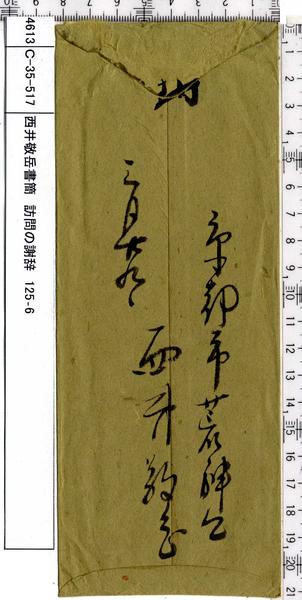 4613 C-35-517 西井敬岳書簡 訪問の謝辞 125-6
封
京都市荒神口
西井敬岳
三月十九